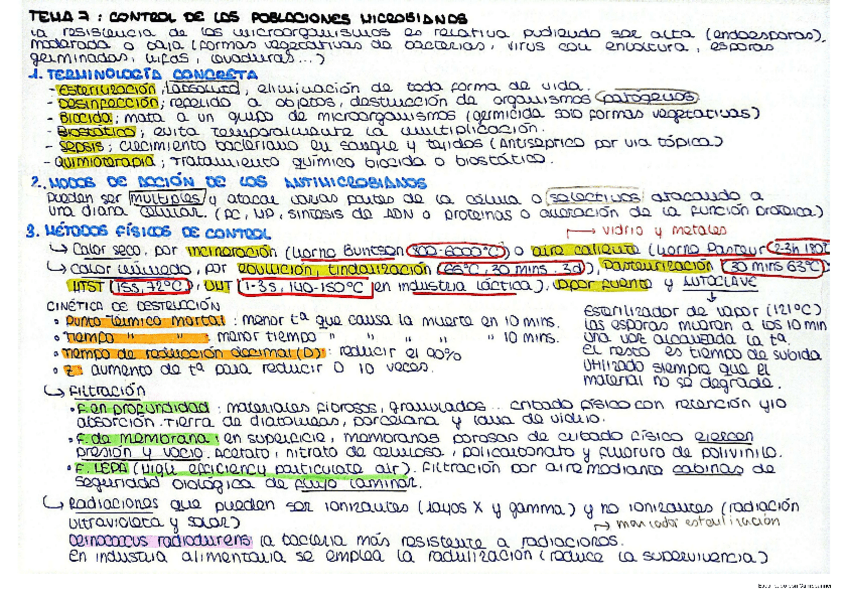 TEMA 7: CONTROL DE LAS POBLACIONES MICROBIANAS
La resistencia de los microorganismos es relativa pudiendo ser alta (endoesporas),
moderada o baja (formas vegetativas de bacterias, virus con envoltura, esporas
germinadas, hifas, levaduras...)
1. TERMINOLOGÍA CONCRETA
- Esterilización; (absoluta), eliminación de toda forma de vida.
- Desinfección; referido a objetos, destrucción de organismos patógenos
- Biocida; mata a un grupo de microorganismos (germicida solo formas vegetativas)
- Biostático; evita temporalmente la multiplicación.
- Sepsis; crecimiento bacteriano en sangre y tejidos (Antiseptico por via tópica)
- Quimioterapia; Tratamiento químico biocida o biostático.
2. MODOS DE ACCIÓN DE LOS ANTIMICROBIANOS
Pueden ser múltiples y atacar varias partes de la célula o selectivos atacando a
una diana celular. (PC, MP, síntesis de ADN o proteínas o alteración de la función protéica)
3. MÉTODOS FÍSICOS DE CONTROL
↳ Calor seco, por incineración (Horno Buntsen 300-6000°C) o aire caliente (Horno Pasteur 2-3h 180°
→ vidrio y metales
↳ Calor húmedo, por ebullición, tindalización (66°C, 30 mins, 3d), Pasteurización 30 mins 63°C
HTST (15s, 72°C), UHT 1-3s, 140-150°C en industria láctica), vapor fluente y AUTOCLAVE
CINÉTICA DE DESTRUCCIÓN
• Punto térmico mortal: menor tª que causa la muerte en 10 mins.
• Tiempo " " : menor tiempo " " " " " 10 mins.
• Tiempo de reducción decimal (D): reducir el 90%
• Z: aumento de tª para reducir 10 veces.
Esterilizador de vapor (121°C)
Las esporas mueren a los 10 min
una vez alcanzada la tª.
El resto es tiempo de subida
Utilizado siempre que el
material no se degrade.
↳ Filtración
• F. en profundidad: materiales fibrosos, granulados... cribado físico con retención y/o
absorción. Tierra de diatomeas, porcelana y lana de vidrio.
• F. de membrana: en superficie, membranas porosas de cribado físico ejercen
presión y vacío. Acetato, nitrato de celulosa, policarbonato y fluoruro de polivinilo.
• F. HEPA (High efficiency particulate air). Filtración por aire mediante cabinas de
seguridad biológica de flujo laminar.
↳ Radiaciones que pueden ser ionizantes (rayos X y gamma) y no ionizantes (radiación
ultravioleta y solar)
↳ marcador esterilización
Deinococcus radiodurens la bacteria más resistente a radiaciones.
En industria alimentaria se emplea la radurización (reduce la supervivencia)